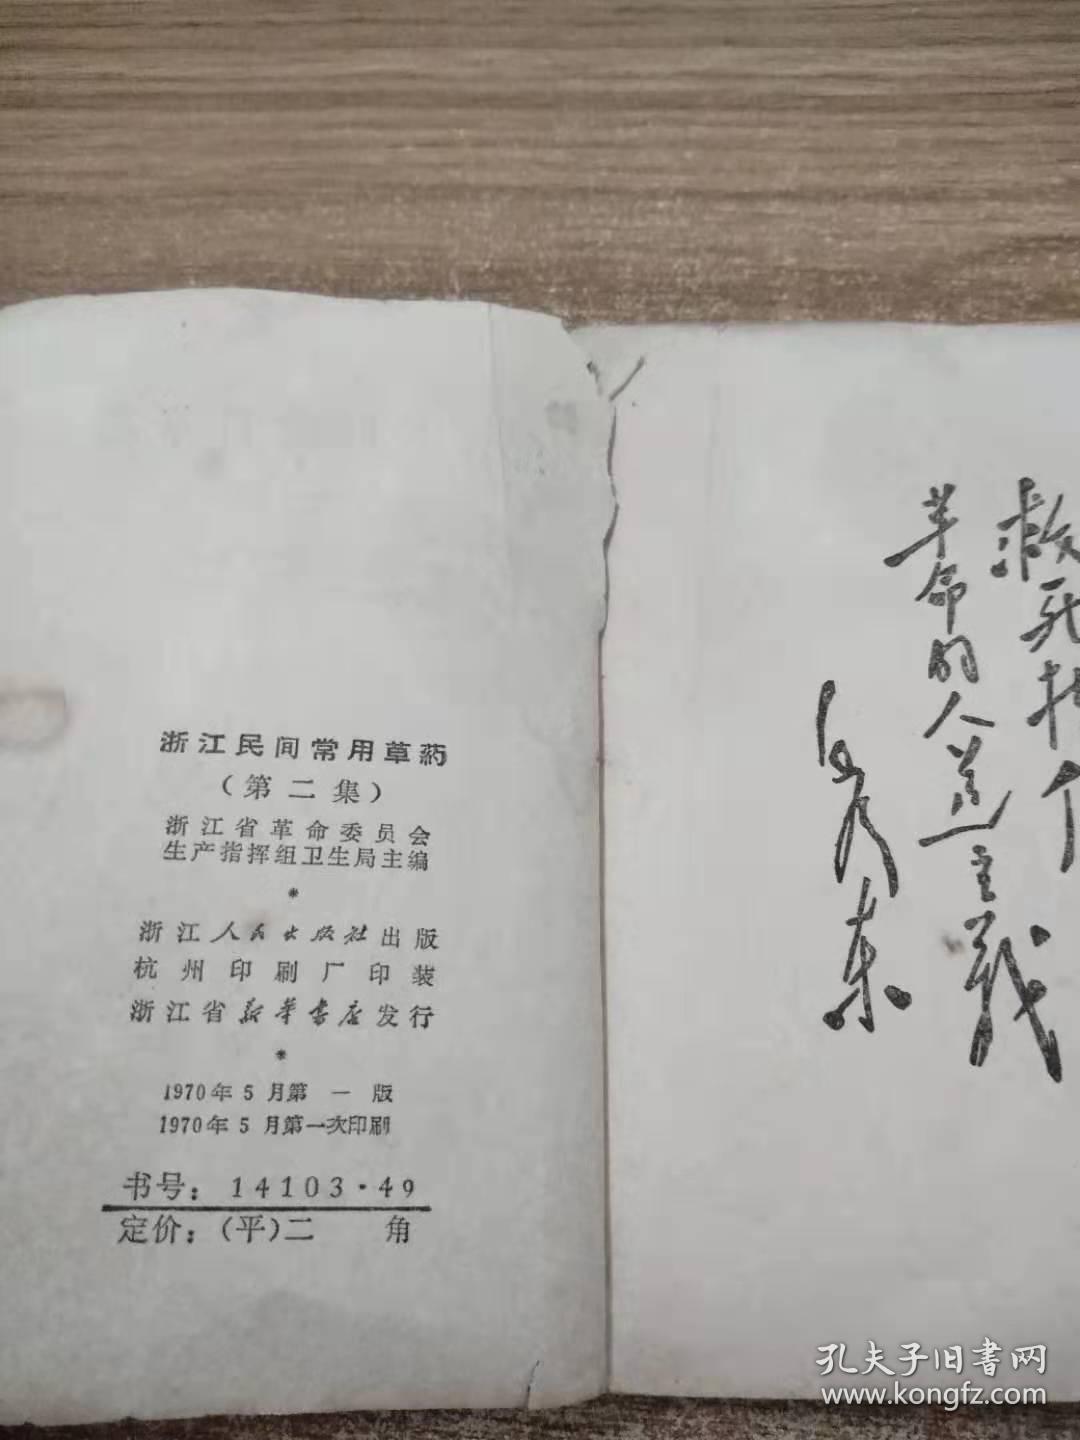 浙江民间常用草药
（第二集）
浙江省革命委员会
生产指挥组卫生局主编
*
浙江人民出版社出版
杭州印刷厂印装
浙江省新华书店发行
*
1970年5月第一版
1970年5月第一次印刷
书号：14103·49
定价：（平）二 角
救死扶
革命的人道主义
毛泽东
孔夫子旧书网
www.kongfz.com